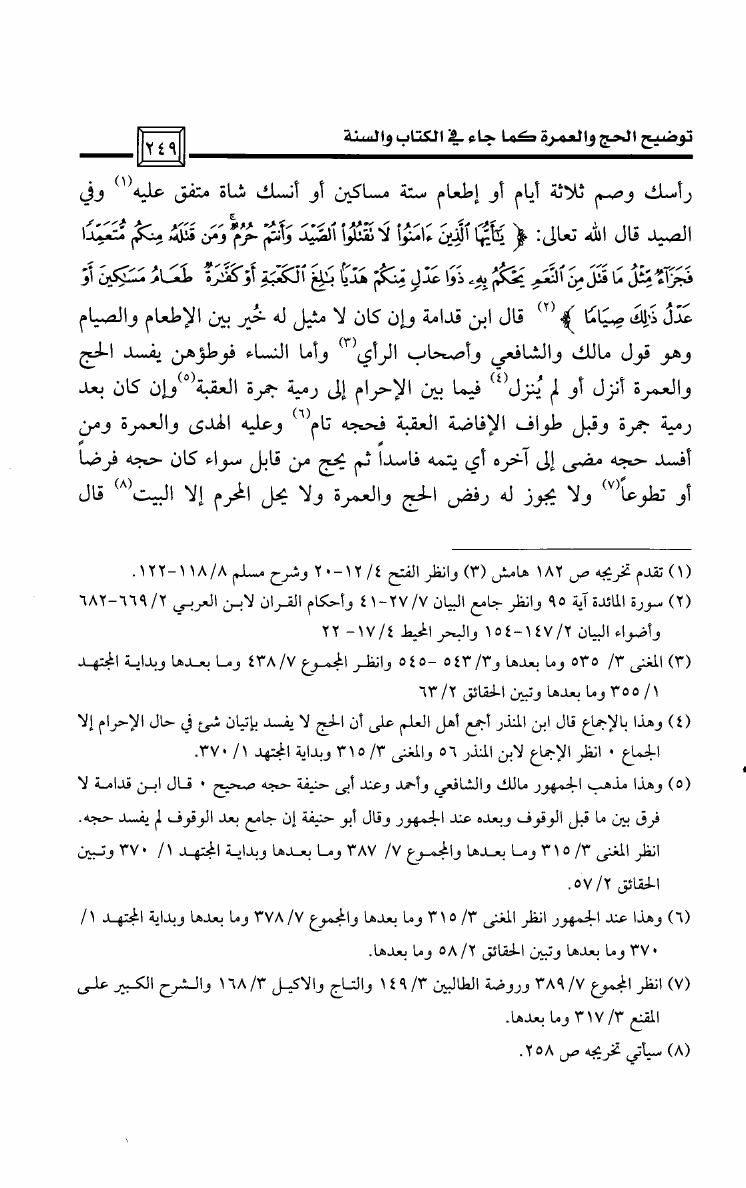 توضيح الحج والعمرة كما جاء في الكتاب والسنة
٢٤٩
رأسك وصم ثلاثة أيام أو إطعام ستة مساكين أو أنسك شاة متفق عليه(١) وفي
الصيد قال الله تعالى: ﴿ يَٰٓأَيُّهَا ٱلَّذِينَ ءَامَنُوا۟ لَا تَقْتُلُوا۟ ٱلصَّيْدَ وَأَنتُمْ حُرُمٌ ۚ وَمَن قَتَلَهُۥ مِنكُم مُّتَعَمِّدًا
فَجَزَآءٌ مِّثْلُ مَا قَتَلَ مِنَ ٱلنَّعَمِ يَحْكُمُ بِهِۦ ذَوَا عَدْلٍ مِّنكُمْ هَدْيًۢا بَٰلِغَ ٱلْكَعْبَةِ أَوْ كَفَّٰرَةٌ طَعَامُ مَسَٰكِينَ أَوْ
عَدْلُ ذَٰلِكَ صِيَامًا ﴾(٢) قال ابن قدامة وإن كان لا مثيل له خُير بين الإطعام والصيام
وهو قول مالك والشافعي وأصحاب الرأي(٣) وأما النساء فوطؤهن يفسد الحج
والعمرة أنزل أو لم يُنزل(٤) فيما بين الإحرام إلى رمية جمرة العقبة(٥)وإن كان بعد
رمية جمرة وقبل طواف الإفاضة العقبة فحجه تام(٦) وعليه الهدى والعمرة ومن
أفسد حجه مضى إلى آخره أي يتمه فاسداً ثم يحج من قابل سواء كان حجه فرضاً
أو تطوعاً(٧) ولا يجوز له رفض الحج والعمرة ولا يحل المحرم إلا البيت(٨) قال
(١) تقدم تخريجه ص ١٨٢ هامش (٣) وانظر الفتح ٤/ ١٢-٢٠ وشرح مسلم ٨/ ١١٨-١٢٢.
(٢) سورة المائدة آية ٩٥ وانظر جامع البيان ٧/ ٢٧-٤١ وأحكام القران لابن العربي ٢/ ٦٦٩-٦٨٢
وأضواء البيان ٢/ ١٤٧-١٥٤ والبحر المحيط ٤/ ١٧- ٢٢
(٣) المغنى ٣/ ٥٣٥ وما بعدها و٣/ ٥٤٣ -٥٤٥ وانظر المجموع ٧/ ٤٣٨ وما بعدها وبداية المجتهد
١/ ٣٥٥ وما بعدها وتبين الحقائق ٢/ ٦٣
(٤) وهذا بالإجماع قال ابن المنذر أجمع أهل العلم على أن الحج لا يفسد بإتيان شئ في حال الإحرام إلا
الجماع ٠ انظر الإجماع لابن المنذر ٥٦ والمغنى ٣/ ٣١٥ وبداية المجتهد ١/ ٣٧٠.
(٥) وهذا مذهب الجمهور مالك والشافعي وأحمد وعند أبى حنيفة حجه صحيح ٠ قال ابن قدامة لا
فرق بين ما قبل الوقوف وبعده عند الجمهور وقال أبو حنيفة إن جامع بعد الوقوف لم يفسد حجه.
انظر المغنى ٣/ ٣١٥ وما بعدها والمجموع ٧/ ٣٨٧ وما بعدها وبداية المجتهد ١/ ٣٧٠ وتبين
الحقائق ٢/ ٥٧.
(٦) وهذا عند الجمهور انظر المغنى ٣/ ٣١٥ وما بعدها والمجموع ٧/ ٣٧٨ وما بعدها وبداية المجتهد ١/
٣٧٠ وما بعدها وتبين الحقائق ٢/ ٥٨ وما بعدها.
(٧) انظر المجموع ٧/ ٣٨٩ وروضة الطالبين ٣/ ١٤٩ والتاج والاكيل ٣/ ١٦٨ والشرح الكبير على
المقنع ٣/ ٣١٧ وما بعدها.
(٨) سيأتي تخريجه ص ٢٥٨.